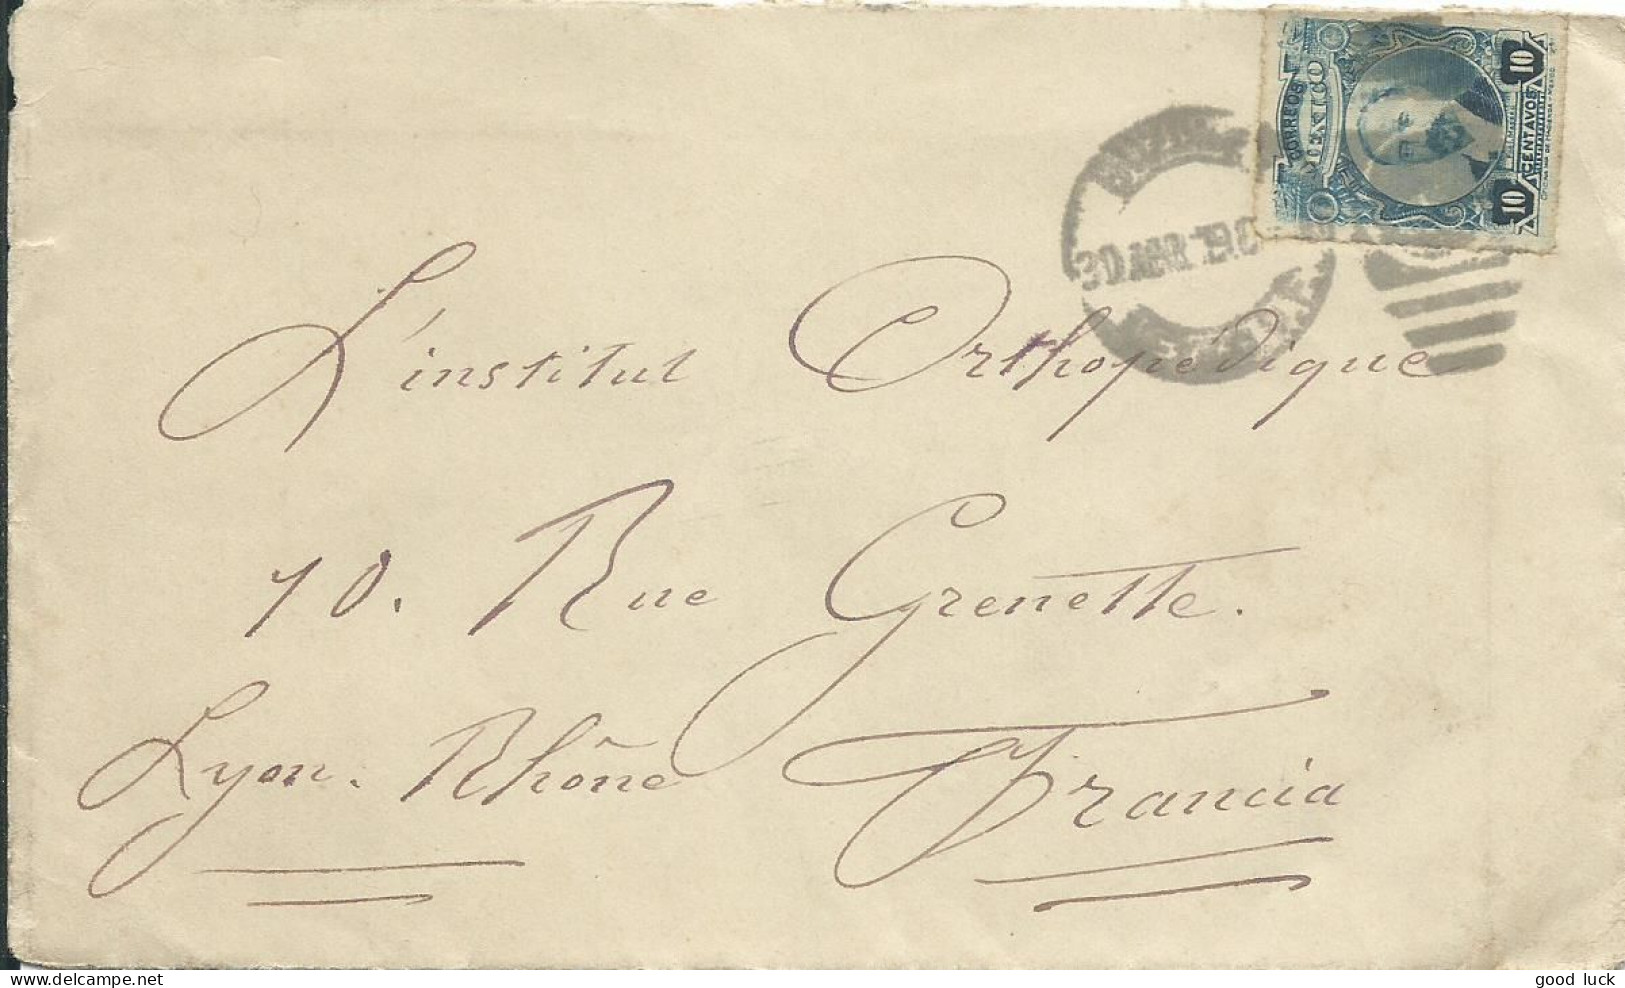 CORREOS
MEXICO
10 CENTAVOS 10
BUZON
30 MAR 19
L'institut Orthopédique
10. Rue Grenette.
Lyon. Rhône Francia
www.delcampe.net
good luck